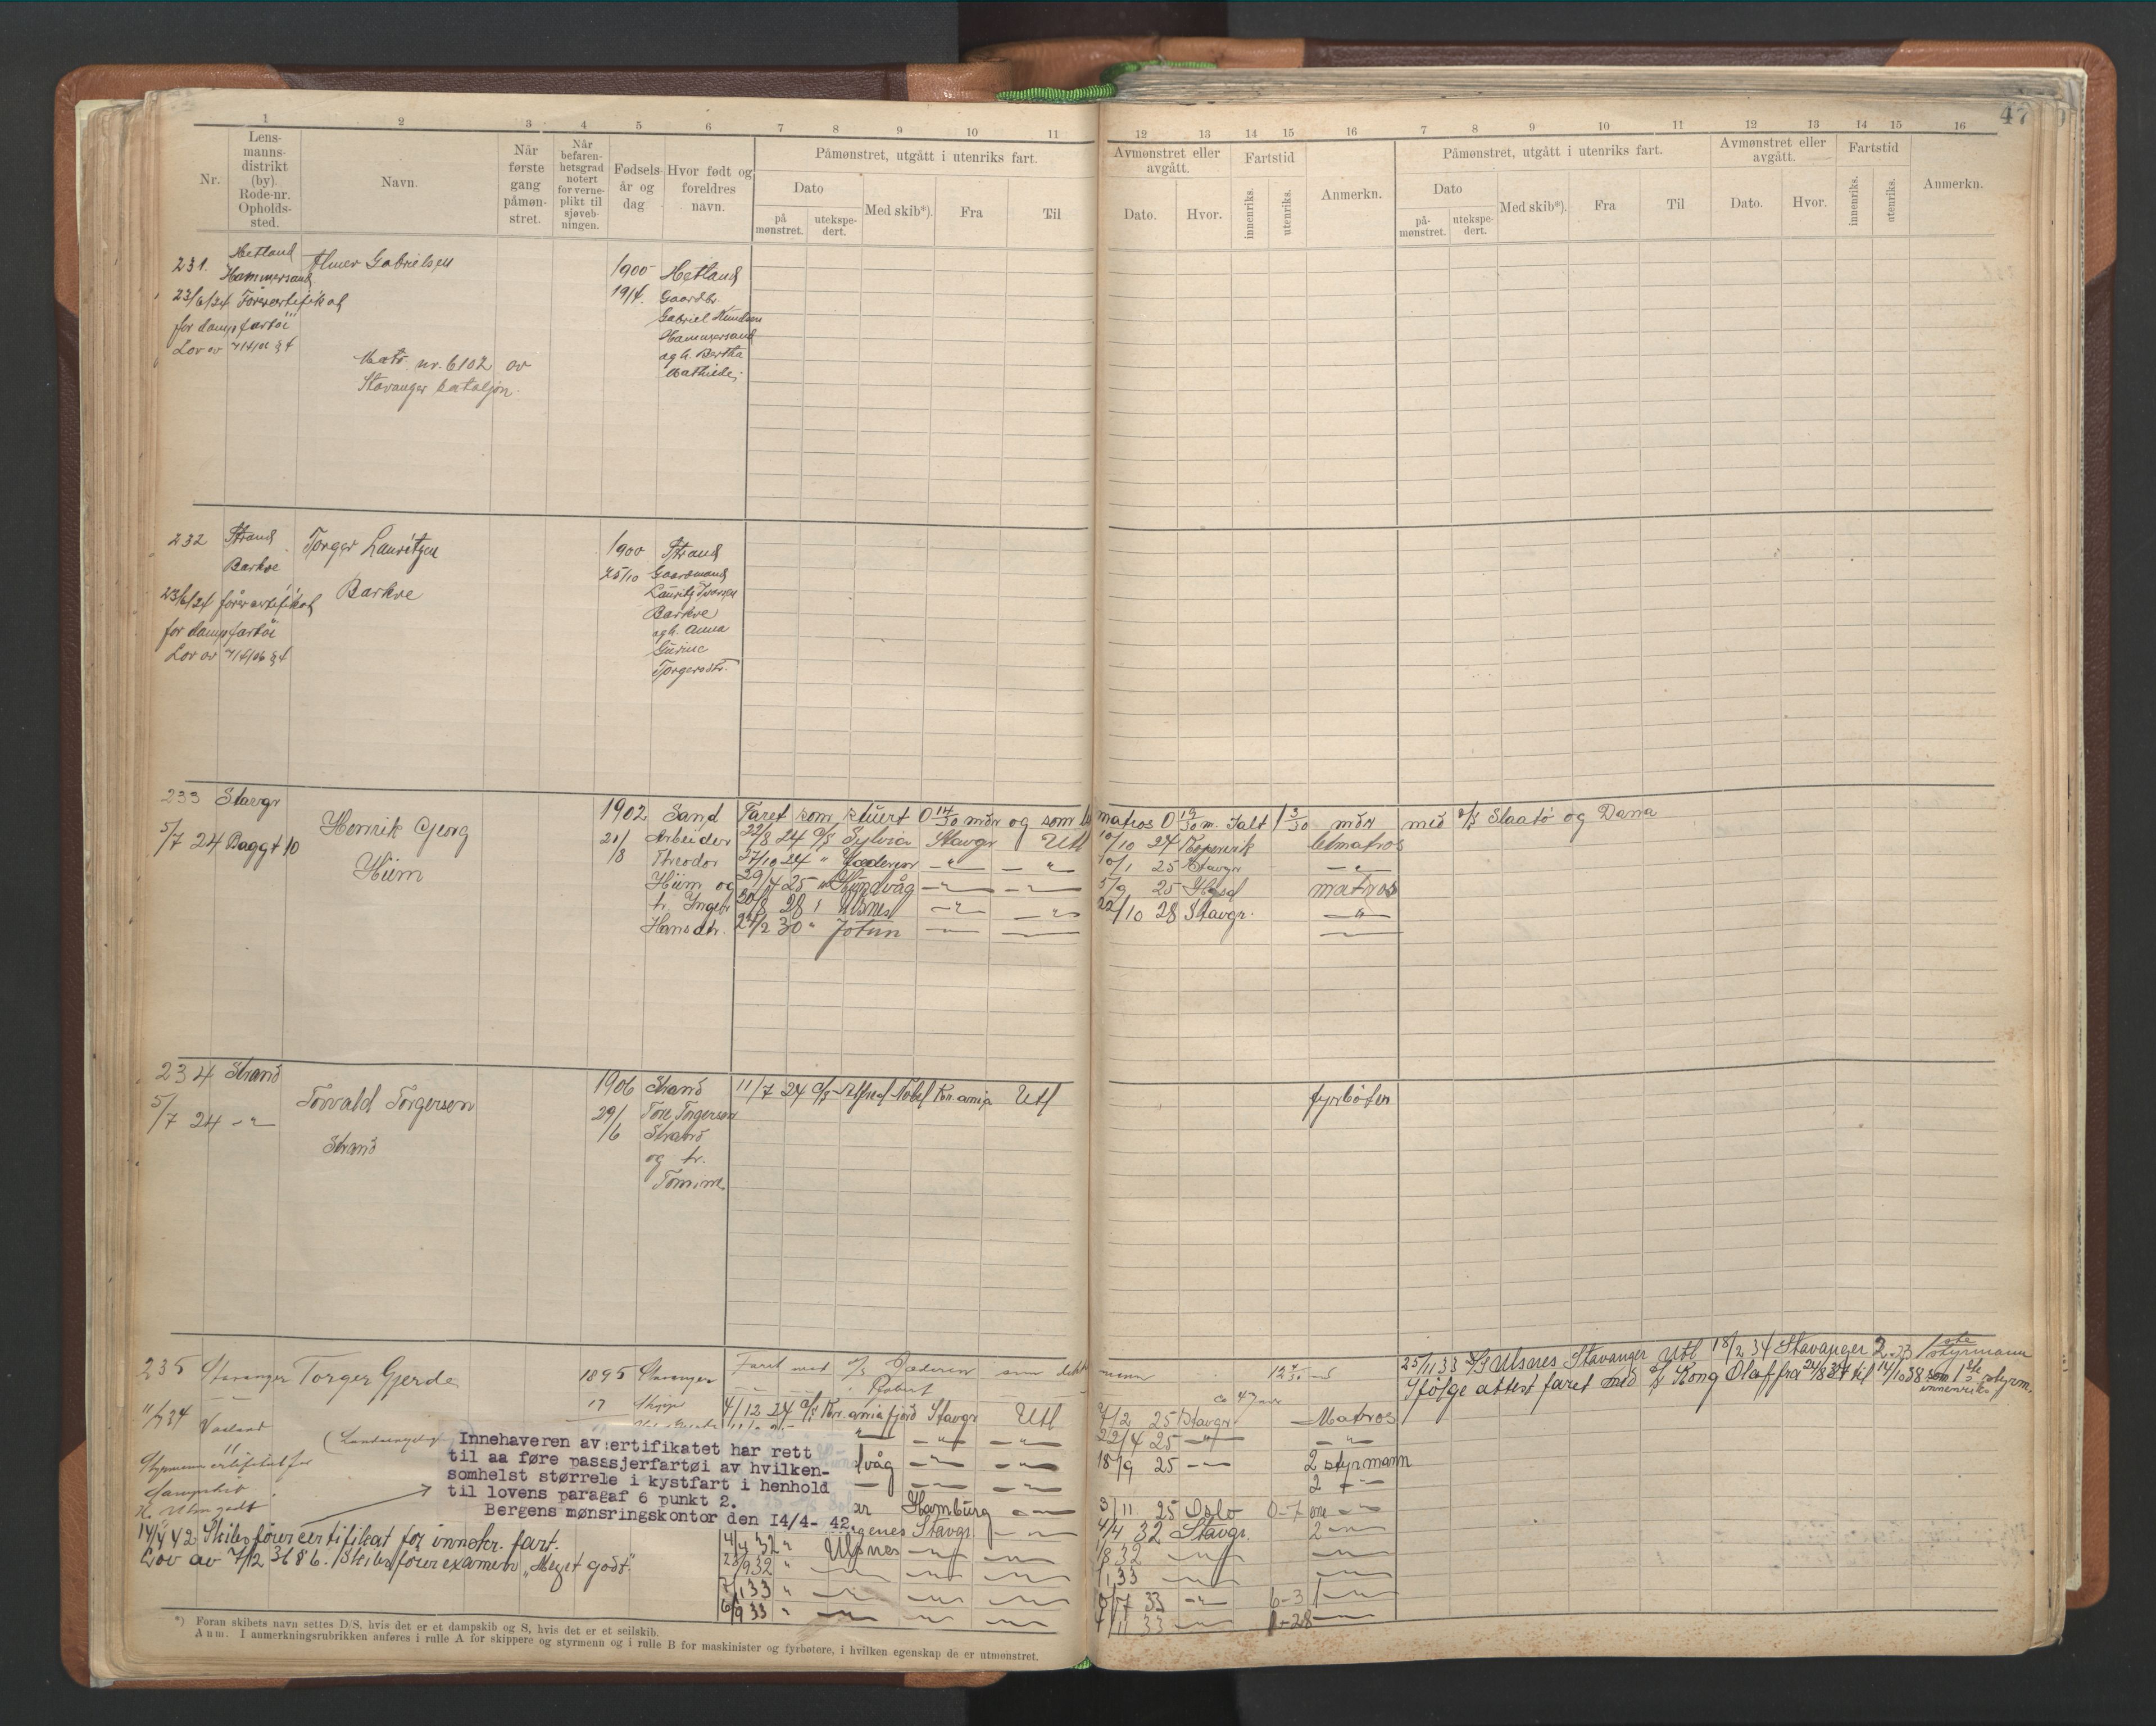 47
1 2 3 4 5 6 7 8 9 10 11 12 13 14 15 16 7 8 9 10 11 12 13 14 15 16
Nr.
Lens-
manns-
distrikt
(by).
Rode-nr.
Opholds-
sted.
Navn.
Når
første
gang
påmøn-
stret.
Når
befaren-
hetsgrad
notert
for verne-
plikt til
sjøveb-
ningen.
Fødsels-
år og
dag
Hvor født og
foreldres
navn.
Påmønstret, utgått i utenriks fart.
Dato
på
mønstret.
utekspe-
dert.
Med skib*).
Fra
Til
Avmønstret eller
avgått.
Dato.
Hvor.
Fartstid
innenriks.
utenriks.
Anmerkn.
Påmønstret, utgått i utenriks fart.
Dato
på-
mønstret.
utekspe-
dert.
Med skib*).
Fra
Til
Avmønstret eller
avgått.
Dato.
Hvor.
Fartstid
innenriks.
utenriks.
Anmerkn.
231. Hetland
Hammersand
Elmer Gabrielsen
1900
19/4.
Hetland
Gaardbr.
Gabriel Knudsen
Hammersand
og h. Bertha
Mathilde
23/6/24 Førercertifikat
for dampfartøi
Lov av 7/4/06 § 4
Matr. nr. 6102 av
Stavanger bataljon.
232 Strand
Barkve
Torger Lauritzen
Barkve
1900
25/10
Strand
Gaardmand
Lauritz
Barkve
og h. Anna
Gurine
Torgersdtr.
23/6/24 førercertifikat
for dampfartøi
Lov av 7/4/06 § 4
233 Stavgr
5/7 24 Baggt 10
Henrik Georg
Hiim
1902
21/
/8
Sand
Arbeider
Theodor
Hiim og
h. Ingebr
Hansdtr.
Faret som stuert 0 14/30 mdr og som
matros 0 19/30 m. Ialt 1 3/30 mdr med D/S Staatø og Dana
22/8 24 D/S Sylvia Stavgr Utl 10/10 24 Kopervik letmatros
27/10 24 " Jæderen — " — " 10/1 25 Stavgr — " —
29/4 25 " Hundvåg — " — " 5/9 25 matros
20/8 28 " Ulsnes — " — " 22/10 28 Stavgr. — " —
24/2 30 " Jotun — —
234 Strand
5/7 24 — " —
Torvald Torgersen
Strand
1906
29/
/6
Strand
Tore Torgersen
Strand
og h.
Tomine
11/7 24 D/S Alfred Nobel Kr.ania Utl fyrbøter
235 Stavanger Torger Gjerde
1895
17
Stavanger
Skipp
11/7 24
Faret med D/S Jæderen som
Robert
4/12 24 D/S Kr.aniafjord Stavgr Utl 7/2 25 Stavgr Matros
22/4 25 — " —
dvåg 18/9 25 2 styrmann
Hamburg 3/11 25 Oslo 0-7
Stavgr. 4/4 32 Stavgr.
4/4 32 " Ulsnes
28/9 32 "
7/1 33 "
6/9 33 "
6-3
1-28
25/11 33 D/S Ulsnes Stavanger Utl 18/2 34 Stavanger 1ste styrmann
Ifølge attest faret med D/S Kong Olaf fra 24/8 34 til 14/10 38 som 1ste styrm.
innenriks
Innehaveren av certifikatet har rett
til aa føre passasjerfartøi av hvilken-
somhelst størrele i kystfart i henhold
til lovens paragaf 6 punkt 2.
Bergens mønsringskontor den 14/4- 42.
14/4 42 Skibsførercertifikat for innenr. fart.
Lov av 7/2 36 § 6. Skibsførerexamen „Meget godt".
*) Foran skibets navn settes D/S, hvis det er et dampskib og S, hvis det er et seilskib.
Anm. I anmerkningsrubrikken anføres i rulle A for skippere og styrmenn og i rulle B for maskinister og fyrbøtere, i hvilken egenskap de er utmønstret.